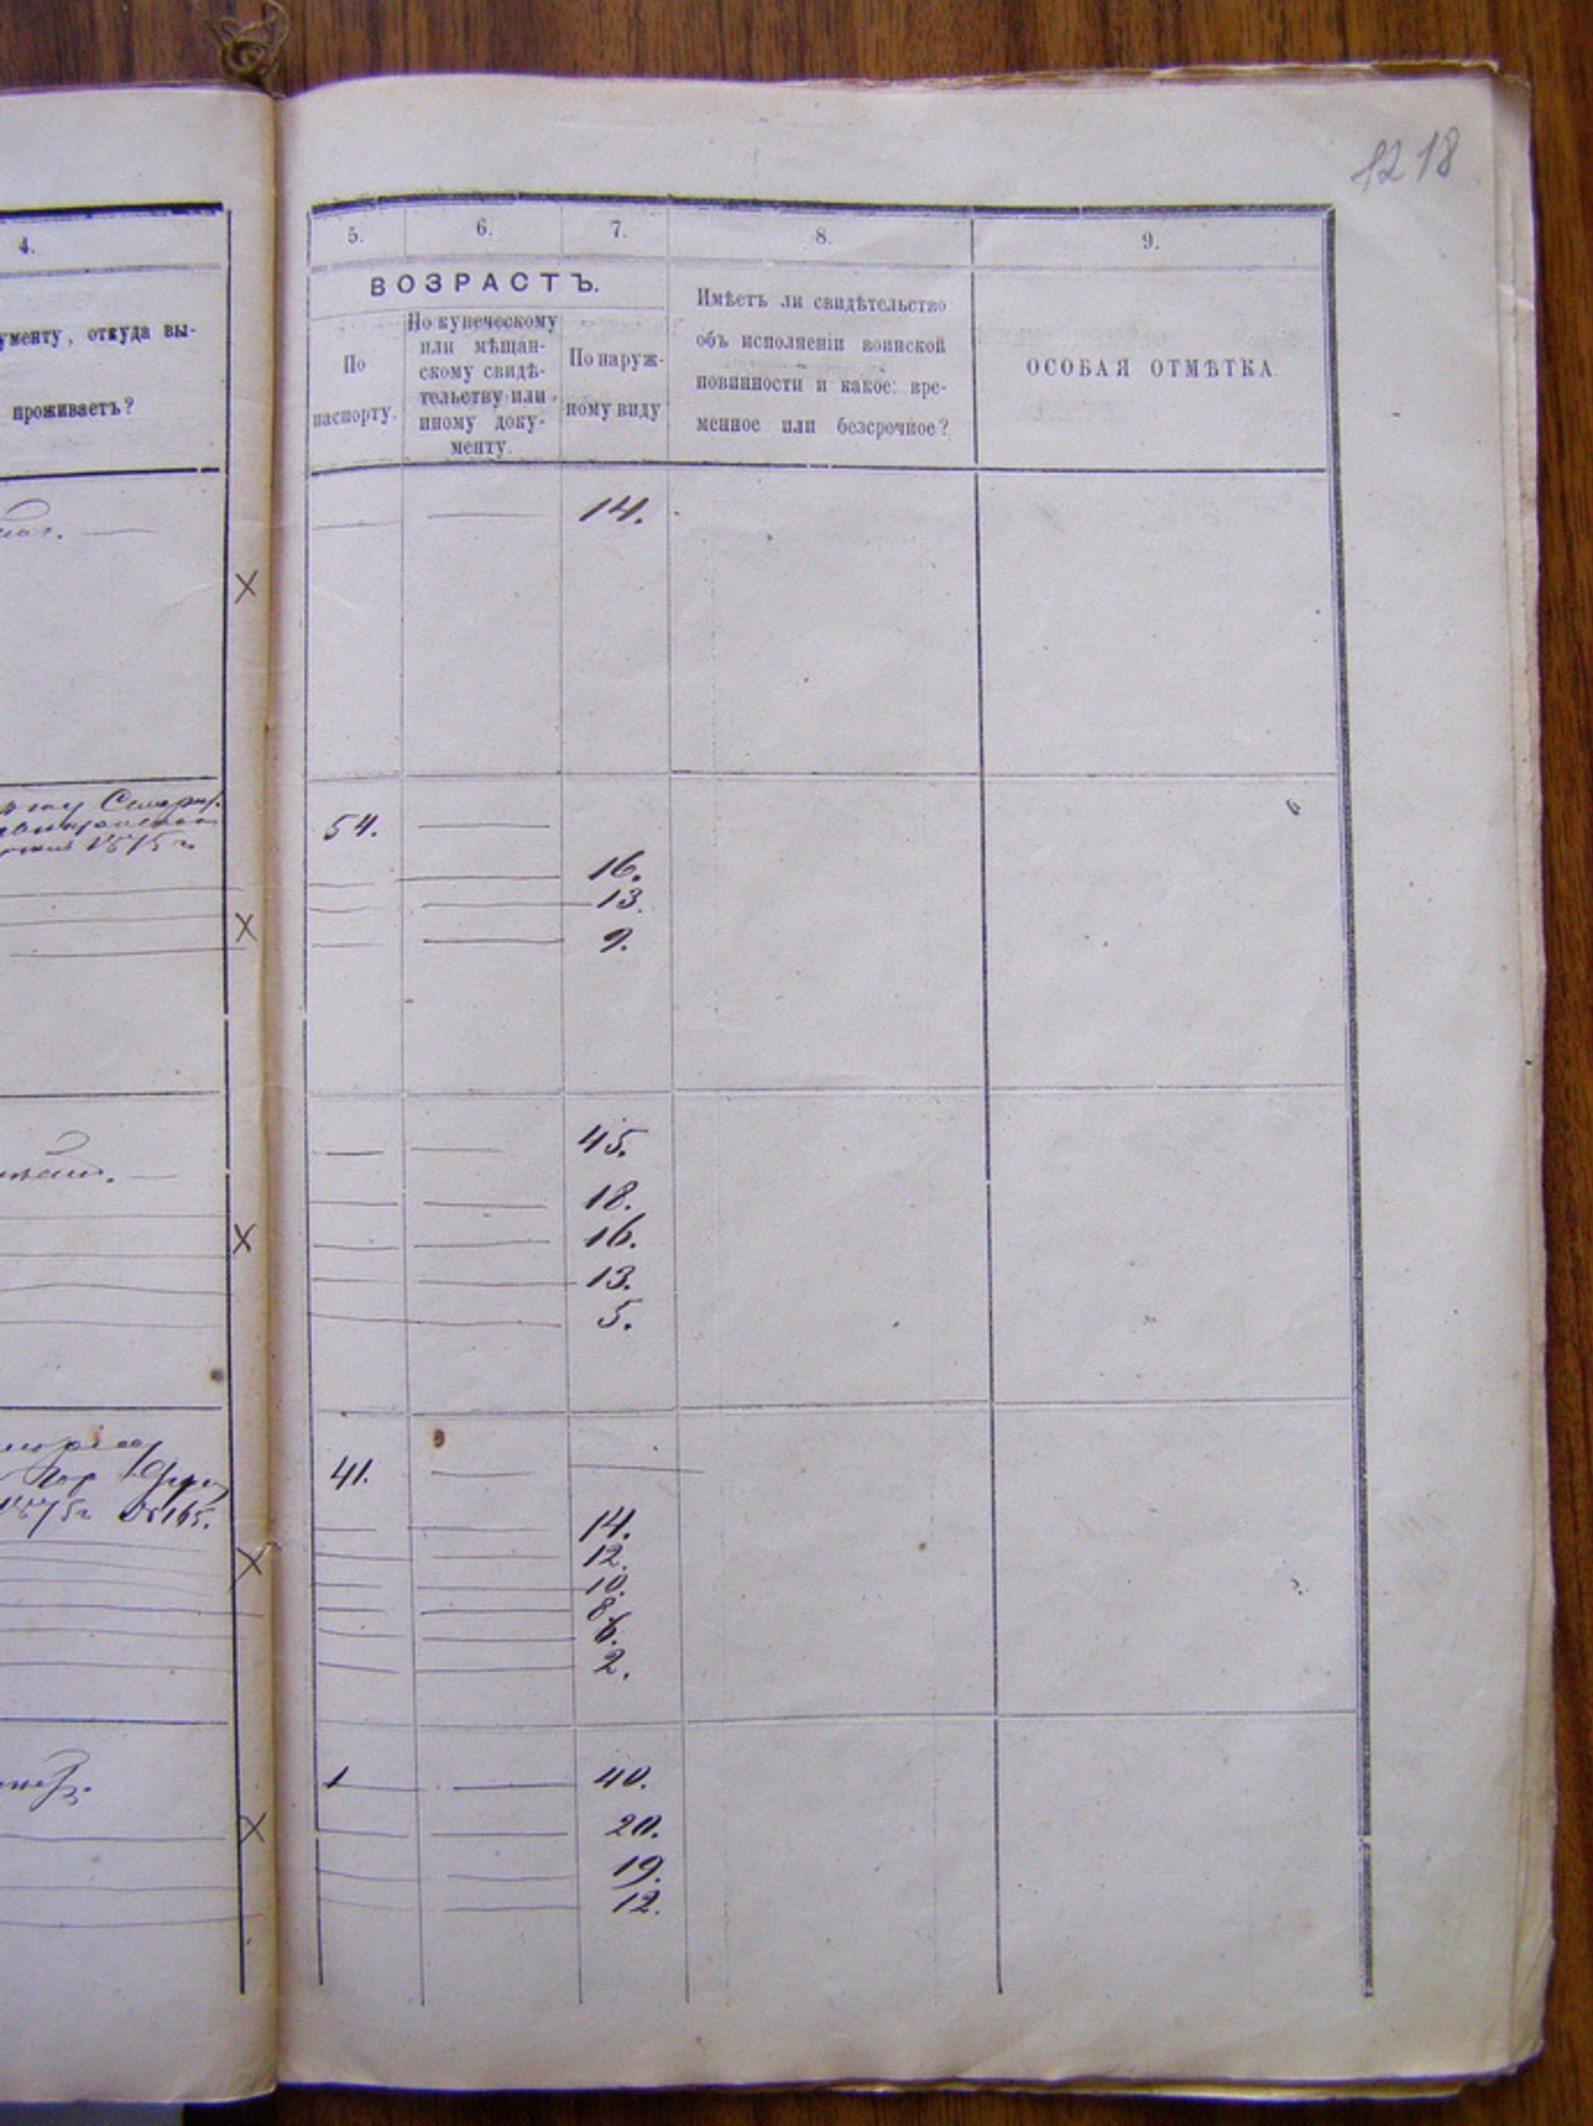 1218
4.
5. 6. 7. 8. 9.
ВОЗРАСТЪ.
ументу, откуда вы-
проживаетъ?
По
паспорту.
По купеческому
или мѣщан-
скому свидѣ-
тельству или
иному доку-
менту.
По наруж-
ному виду
Имѣетъ ли свидѣтельство
объ исполненіи воинской
повинности и какое: вре-
менное или безсрочное?
ОСОБАЯ ОТМѢТКА.
— — 14.
X
1875 г.
54. —
— — 16.
— — 13.
X
— — 9.
— — 45.
— — 18.
X
— — 16.
— — 13.
— 5.
41. — —
1875г № 165.
— — 14.
X
— — 12.
— — 10.
— — 8.
— — 6.
— — 2.
— — 40.
X
— — 20.
— — 19.
— — 12.